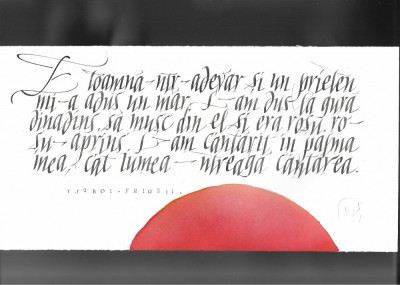 E toamnă-ntr-adevăr și un prieten
mi-a adus un măr. L-am dus la gură
dinadins, să musc din el și era roșu, ro-
șu-aprins. L-am cântărit în palma
mea, cât lumea-ntreagă cântărea.